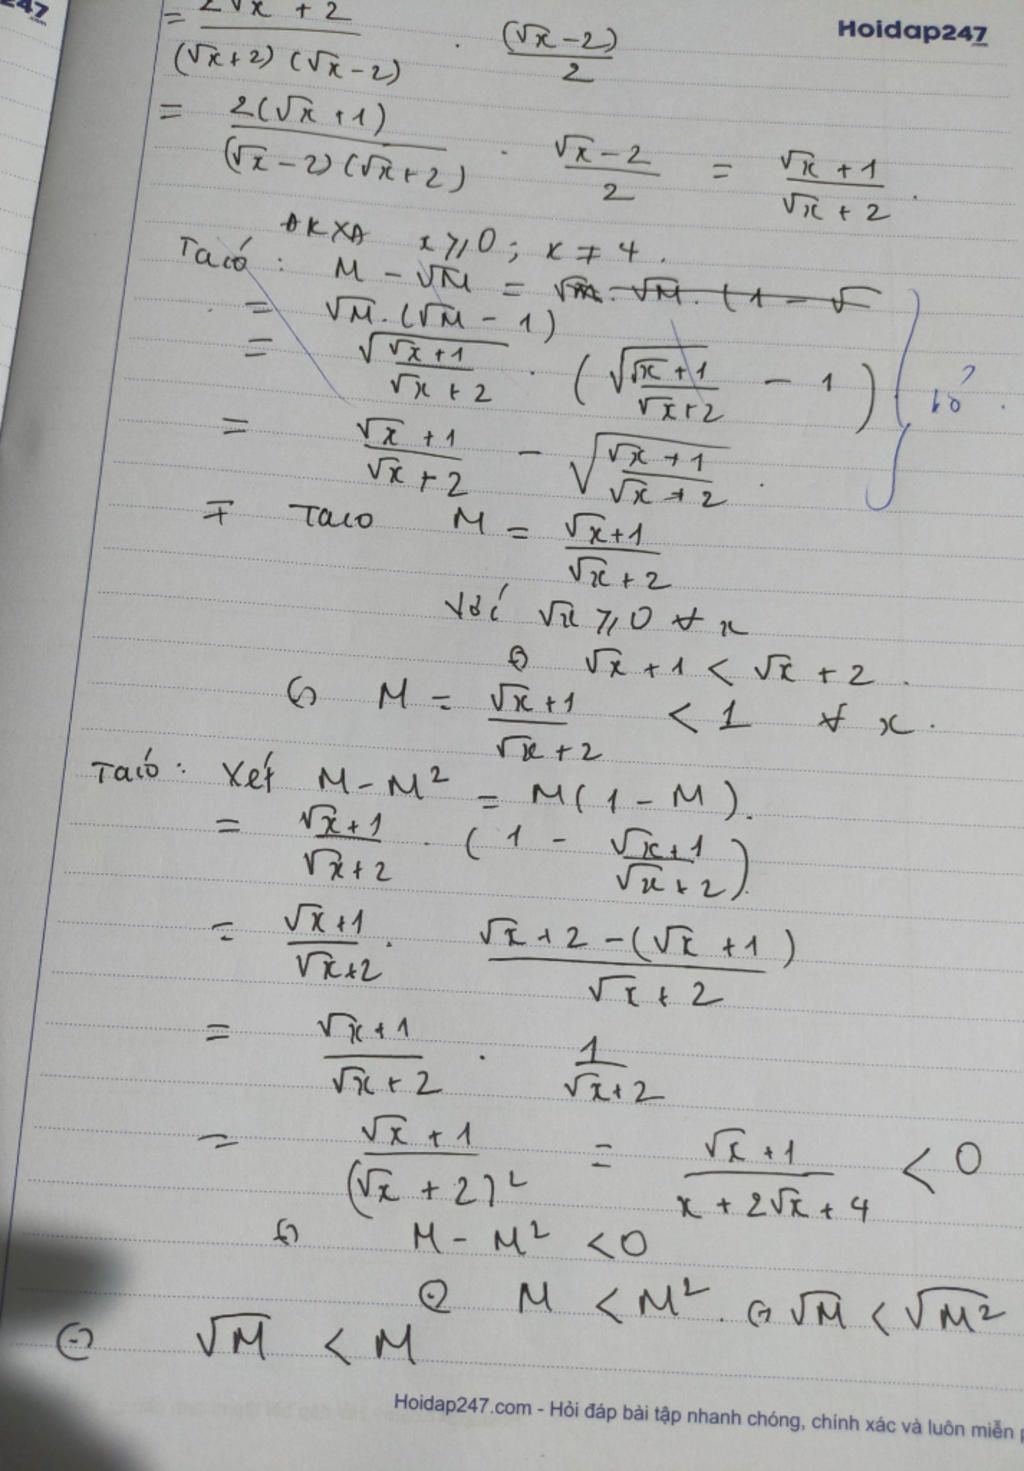 247
Hoidap247
= (2√x + 2)/((√x+2)(√x-2)) · (√x-2)/2
= 2(√x+1)/((√x-2)(√x+2)) · (√x-2)/2 = (√x+1)/(√x+2) .
ĐKXĐ x ⩾ 0 ; x ≠ 4 .
Ta có : M - √M = √M. √M. (1 - √
= √M . (√M - 1)
= √((√x+1)/(√x+2)) · (√((√x+1)/(√x+2)) - 1) bỏ .
= (√x+1)/(√x+2) - √((√x+1)/(√x+2)) .
Ta có M = (√x+1)/(√x+2)
Với √x ⩾ 0 ∀ x
⇔ √x + 1 < √x + 2 .
⇔ M = (√x+1)/(√x+2) < 1 ∀ x .
Ta có : Xét M - M² = M(1 - M).
= (√x+1)/(√x+2) · (1 - (√x+1)/(√x+2)).
= (√x+1)/(√x+2) · (√x+2-(√x+1))/(√x+2)
= (√x+1)/(√x+2) · 1/(√x+2)
= (√x+1)/(√x+2)² = (√x+1)/(x+2√x+4) < 0
⇔ M - M² < 0
⇔ M < M² . ⇔ √M < √M²
⇔ √M < M
Hoidap247.com - Hỏi đáp bài tập nhanh chóng, chính xác và luôn miễn p